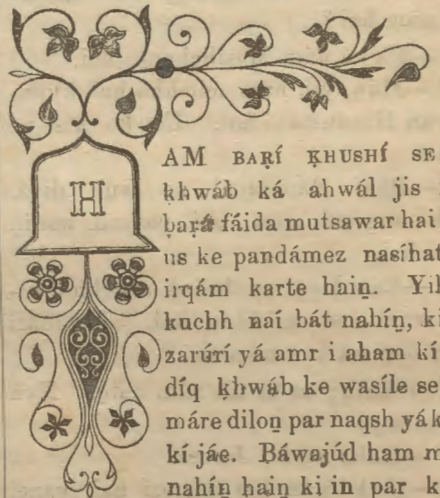 HAM BAṞÍ ḴHUSHÍ SE
ḵhwáb ká ahwál jis
baṟá fáida mutsawar hai
us ke pandámez nasíhat
irqám karte haiṉ. Yih
kuchh naí bát nahíṉ, ki
zarúrí yá amr i aham kí
díq ḵhwáb ke wasíle se
máre diloṉ par naqsh yá k
kí jáe. Báwajúd ham m
nahíṉ haiṉ ki in par k